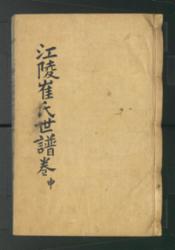 江陵崔氏世譜卷中